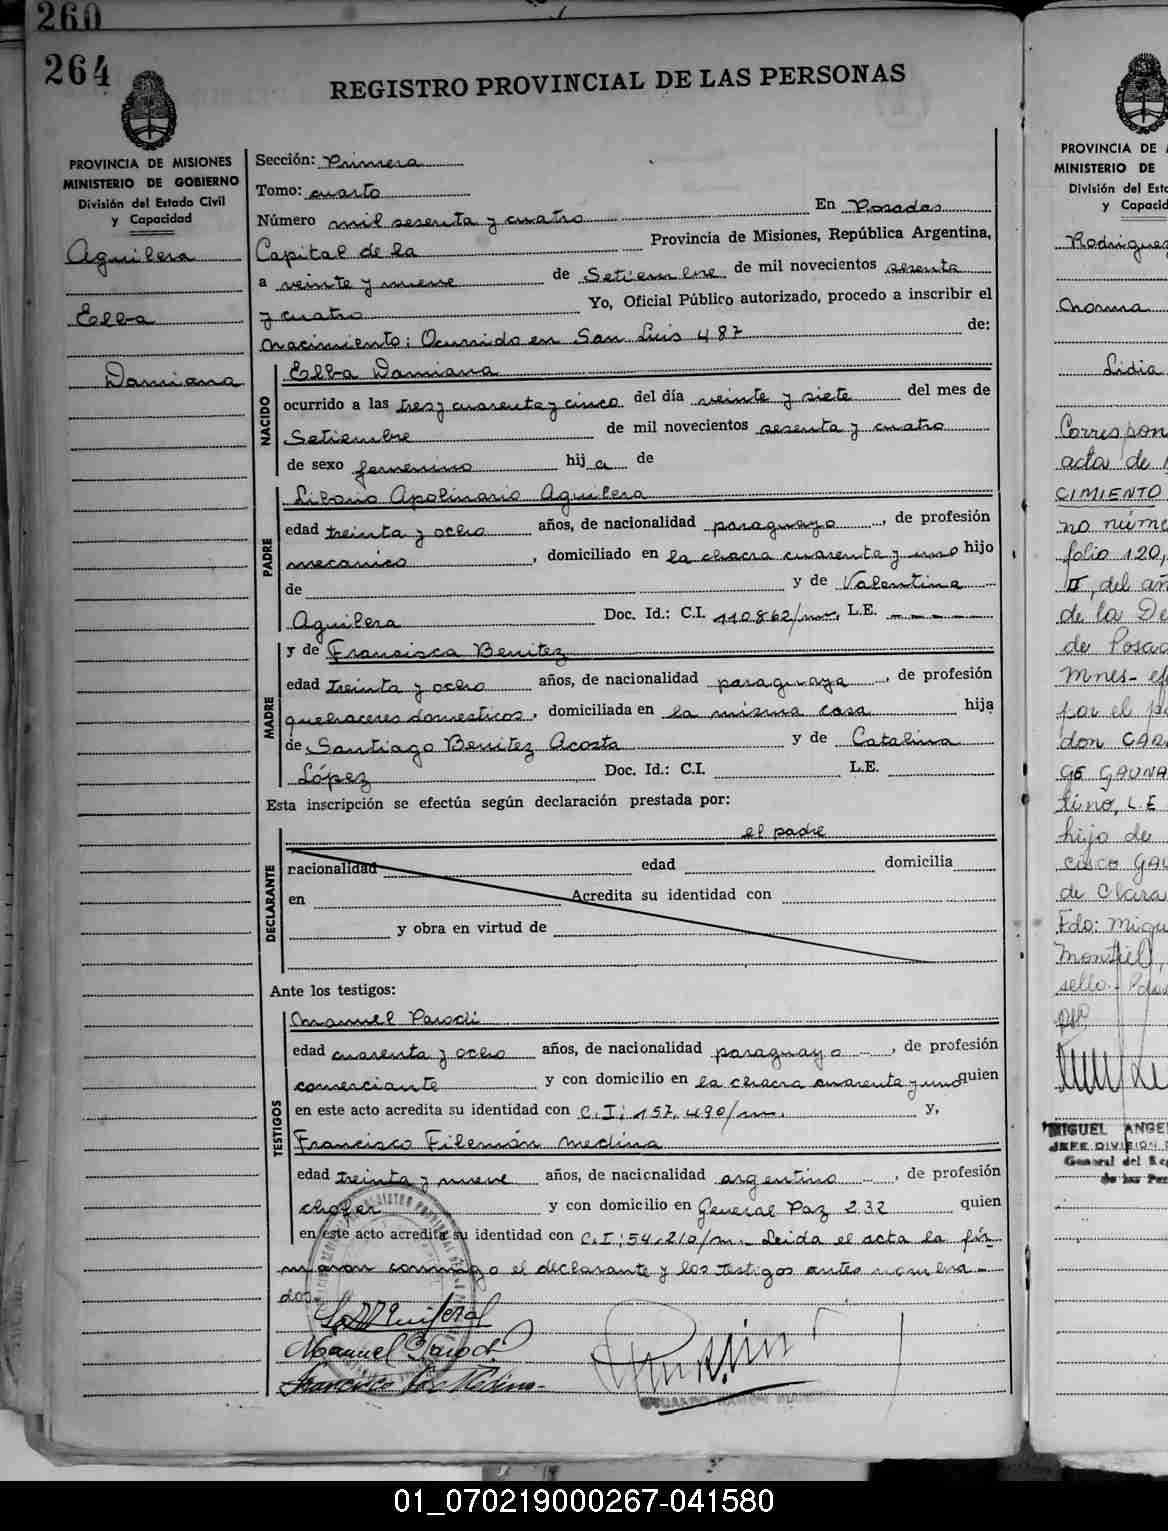 260
264
REGISTRO PROVINCIAL DE LAS PERSONAS
PROVINCIA DE MISIONES
MINISTERIO DE GOBIERNO
División del Estado Civil
y Capacidad
Aguilera
Elba
Damiana
Sección: Primera
Tomo: cuarto
Número mil sesenta y cuatro En Posadas
Capital de la Provincia de Misiones, República Argentina,
a veinte y nueve de Setiembre de mil novecientos sesenta
y cuatro Yo, Oficial Público autorizado, procedo a inscribir el
nacimiento: Ocurrido en San Luis 487 de:
NACIDO
Elba Damiana
ocurrido a las tres y cuarenta y cinco del día veinte y siete del mes de
Setiembre de mil novecientos sesenta y cuatro
de sexo femenino hija de
PADRE
Liborio Apolinario Aguilera
edad treinta y ocho años, de nacionalidad paraguayo, de profesión
mecanico, domiciliado en la chacra cuarenta y uno hijo
de y de Valentina
Aguilera Doc. Id.: C.I. 110.862/ L.E. -----
MADRE
y de Francisca Benitez
edad treinta y ocho años, de nacionalidad paraguaya, de profesión
quehaceres domesticos, domiciliada en la misma casa hija
de Santiago Benitez Acosta y de Catalina
López Doc. Id.: C.I. L.E.
Esta inscripción se efectúa según declaración prestada por:
DECLARANTE
el padre
nacionalidad edad domicilia
en Acredita su identidad con
y obra en virtud de
Ante los testigos:
TESTIGOS
Manuel Parodi
edad cuarenta y ocho años, de nacionalidad paraguayo, de profesión
comerciante y con domicilio en la chacra cuarenta y uno quien
en este acto acredita su identidad con C.I: 157.490/m. y,
Francisco Filemón Medina
edad treinta y nueve años, de nacionalidad argentino, de profesión
chofer y con domicilio en General Paz 232 quien
en este acto acredita su identidad con C.I: 54.210/m. Leida el acta la fir-
maron conmigo el declarante y los testigos antes nombra-
dos.
Manuel Parodi
Francisco Medina
PROVINCIA DE
MINISTERIO DE
División del Esta
y Capacid
Rodriguez
Norma
Lidia
Correspon
acta de
CIMIENTO
no núme
folio 120,
II, del añ
de la De
de Posad
Mnes-
por el
don CAR
GE GAUNA
tino, L.E
hijo de
cisco GAU
de Clara
Fdo: Migu
Montiel,
sello.
MIGUEL ANGE
JEFE DIVISION
General del Reg
de las Per
01_070219000267-041580